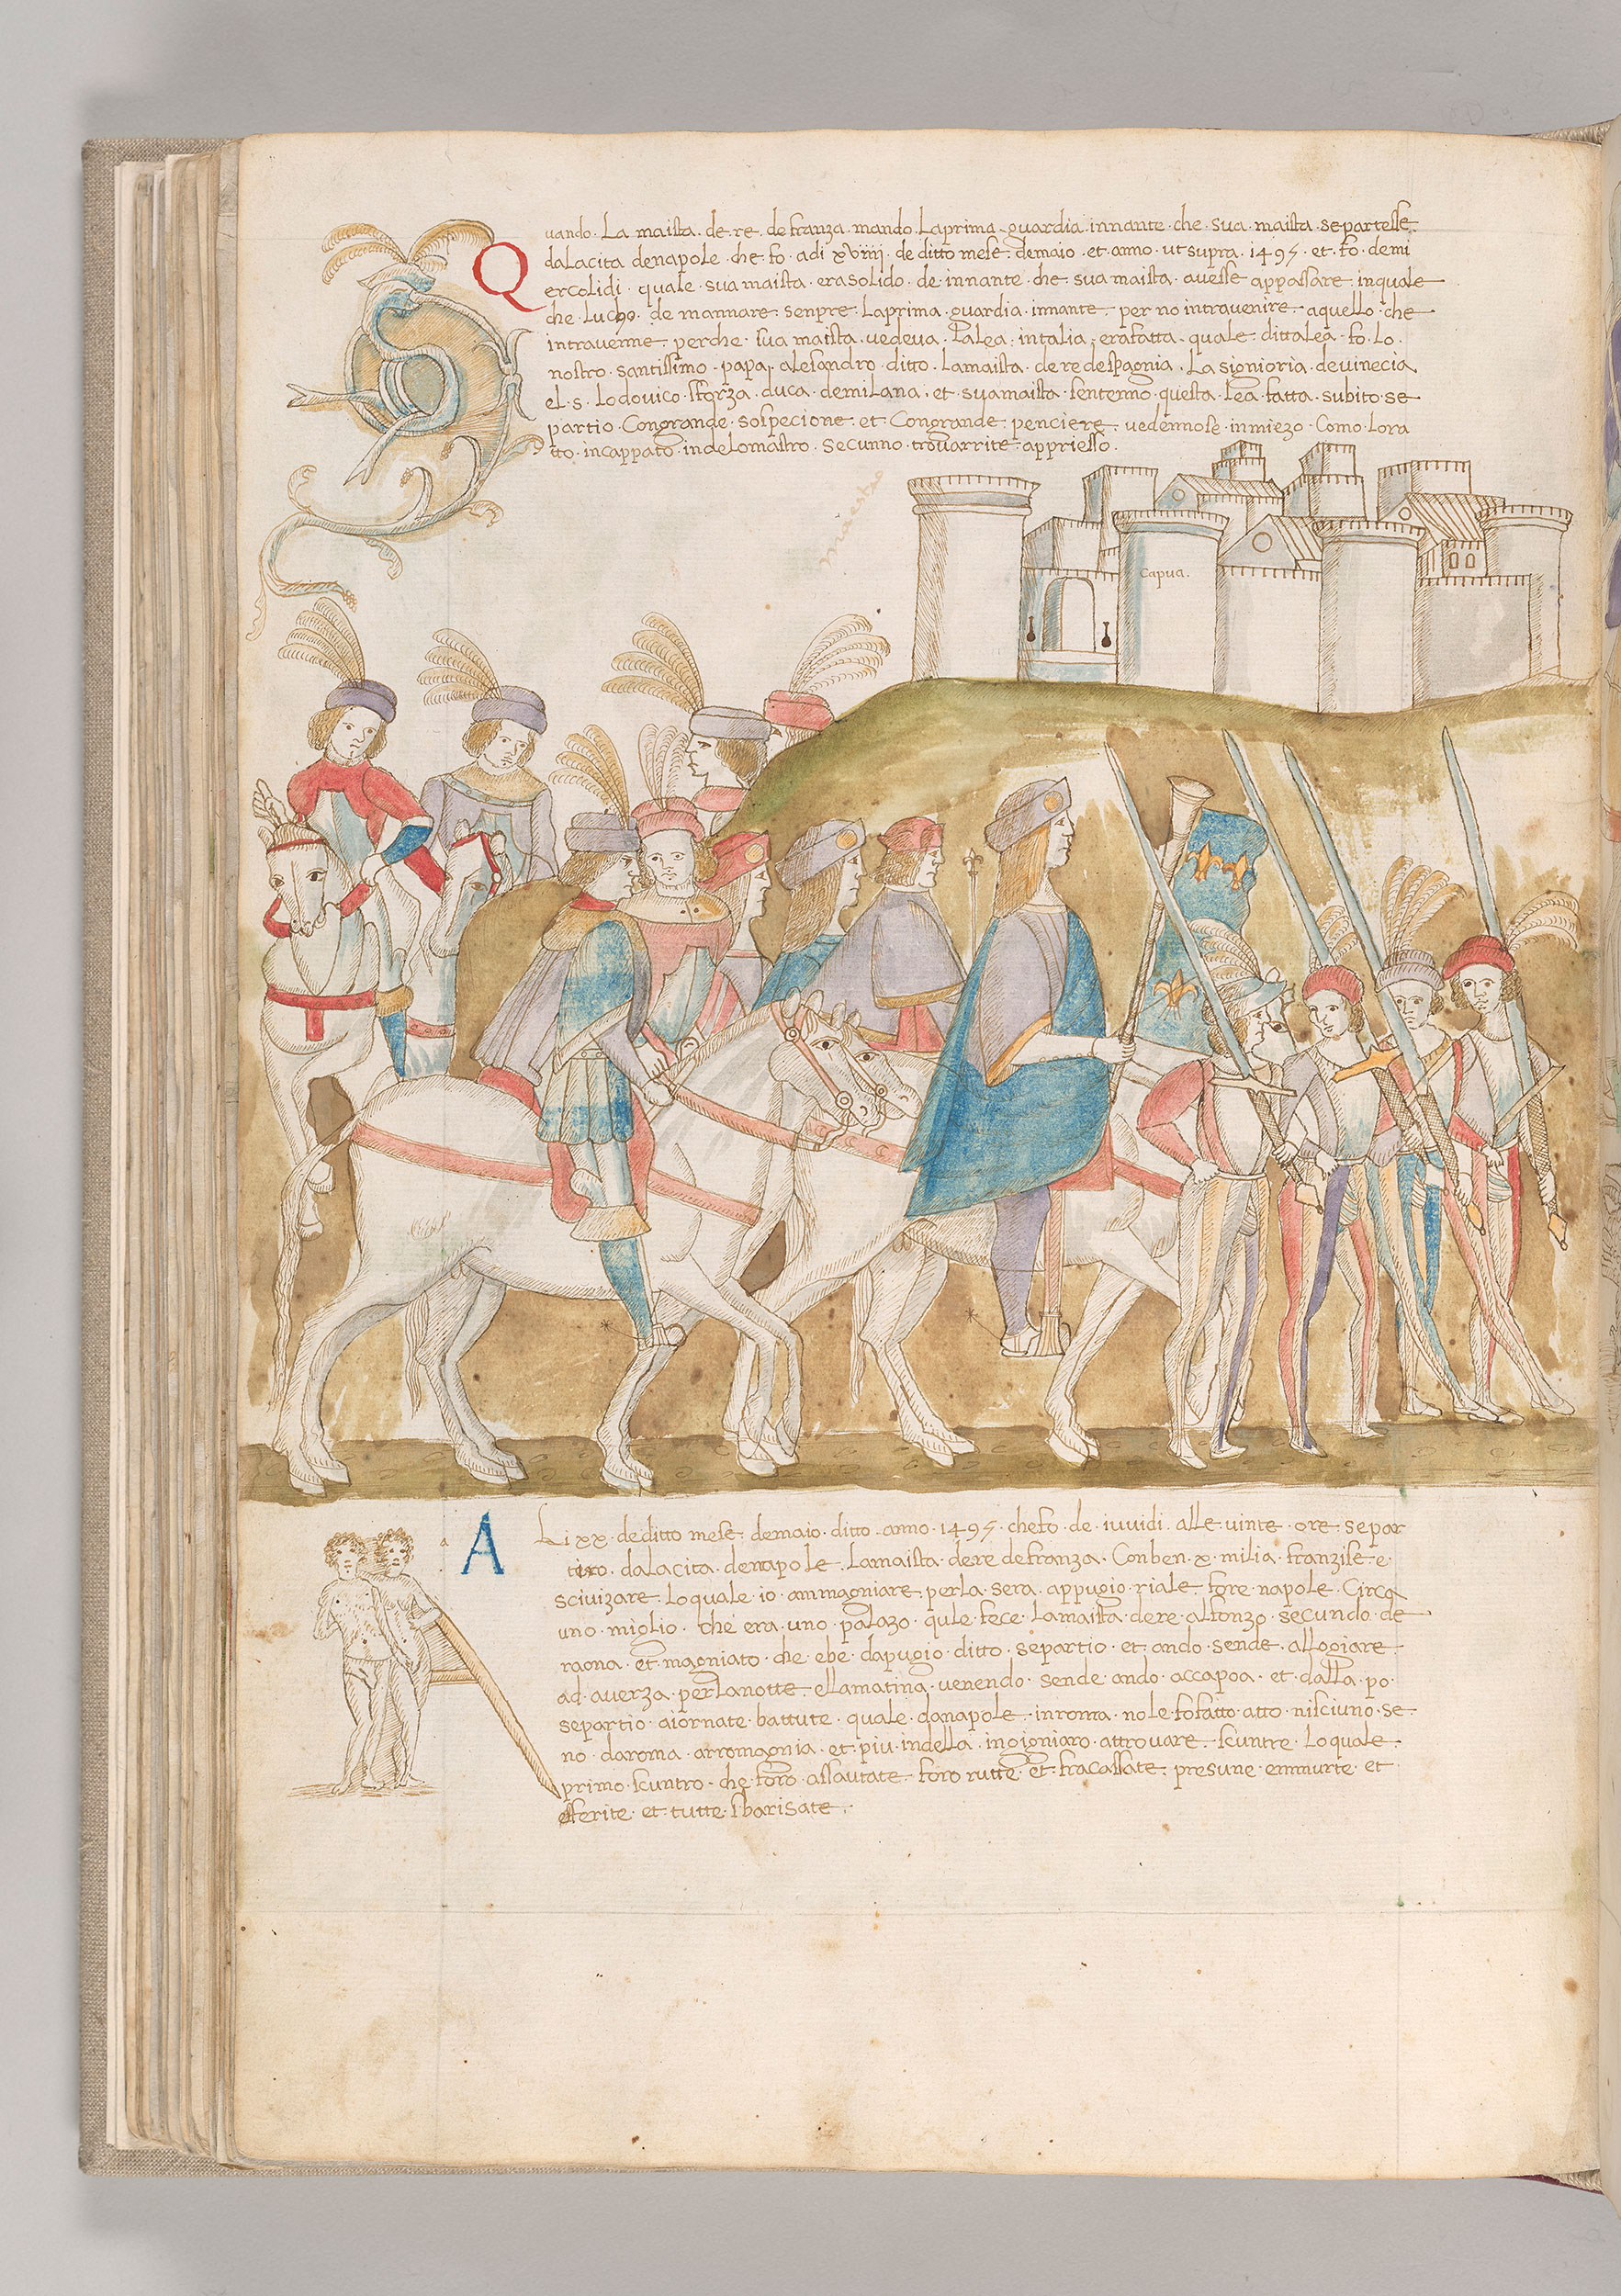 Quando · La maista · de · re · de franza · mando · Laprima · guardia · innante · che · sua · maista · separtesse ·
dalacita denapole · che · fo · adi xviiii · de ditto mese · demaio · et · anno · ut supra · 1495 · et · fo · demi
ercolidi · quale · sua maista · era solido · de · innante · che · sua maista · auesse appassare · inquale
che · lucho · de mannare · senpre · Laprima · guardia · innante · per no intrauenire · aquello · che
intrauenne · perche · sua maista · uedeua · Lalea · intalia · erafatta · quale · dittalea · fo · Lo ·
nostro · santissimo · papa · alesandro · ditto · Lamaista · de re despagnia · La signioria · deuinecia
el · s · Lodouico · sforza · duca · demilana · et · suamaista · sentenno · questa · lea · fatta · subito · se
partio · Congrande · sospecione · et · Congrande · penciere · uedennose · inmiezo · Como · Lora
tto · incappato · indelomastro · secunno · trouarrite · appriesso ·
maestro
Capua ·
a
ALi xx · deditto mese · demaio · ditto · anno · 1495 · chefo · de · iuuidi · alle · uinte · ore · separ
tero · dalacita · denapole · Lamaista · dere defranza · Conben · x · milia · franzise · e ·
sciuizare · Loquale · io · ammagniare · perla · sera · appugio · riale · fore · napole · Circa
uno · miglio · che · era · uno · palazo · qule · fece · Lamaista · dere · alfonzo · secundo · de
raona · et · magniato · che · ebe · dapugio · ditto · separtio · et · ando · sende · allogiare ·
ad · auerza · perlanotte · ellamatina · uenendo · sende · ando · accapoa · et · dalla · po ·
separtio · aiornate · battute · quale · danapole · inroma · nole · fofatto · atto · nisciuno · se
no · daroma · arromagnia · et · piu · indella · ingigniaro · attrouare · scuntre · Loquale ·
primo · scuntro · che · foro · assautate · foro rutte · et · fracassate · presune · emmurte · et
efferite · et · tutte · sbarisate ·